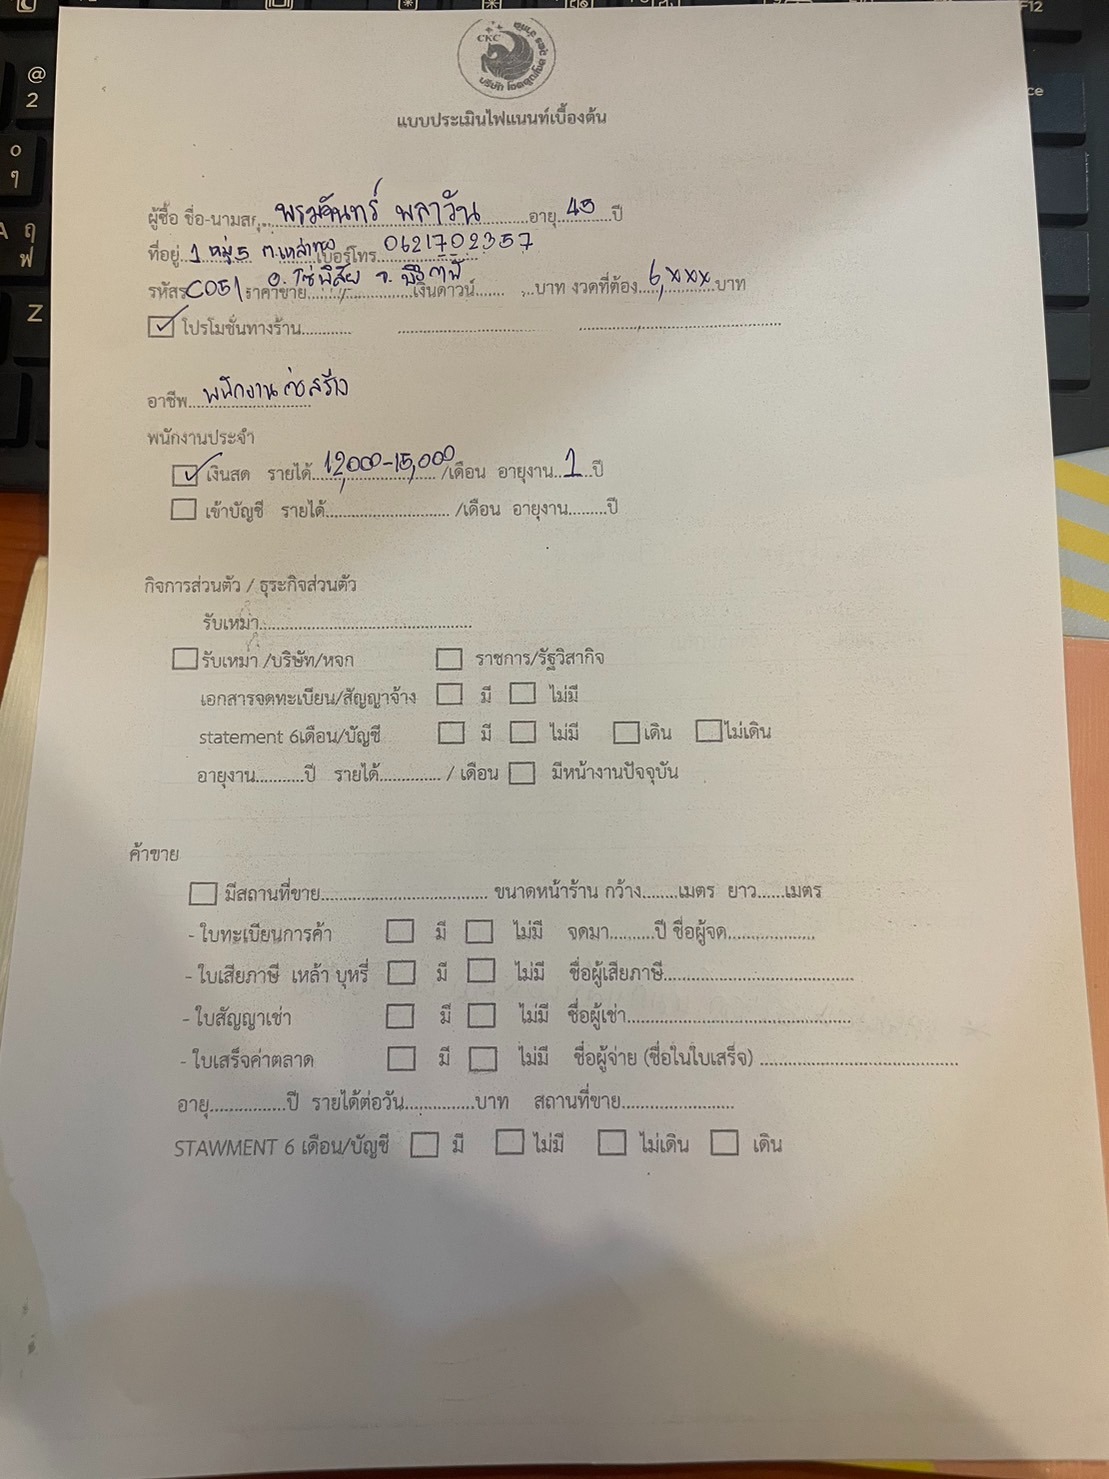 CKC
แบบประเมินไฟแนนท์เบื้องต้น
ผู้ซื้อ ชื่อ-นามสกุ...พรมจันทร์ พลาวัน...อายุ...45...ปี
ที่อยู่ 1 หมู่5 ต.เหล่าทอง เบอร์โทร...0621702357
อ.โซ่พิสัย จ.บึงกาฬ
รหัสร C051 ราคาขาย...เงินดาวน์......บาท งวดที่ต้อง...6,xxx...บาท
☑ โปรโมชั่นทางร้าน...
อาชีพ...พนักงานก่อสร้าง
พนักงานประจำ
☑ เงินสด รายได้...12,000-15,000.../เดือน อายุงาน...1...ปี
☐ เข้าบัญชี รายได้.../เดือน อายุงาน...ปี
กิจการส่วนตัว / ธุระกิจส่วนตัว
รับเหมา...
☐ รับเหมา /บริษัท/หจก ☐ ราชการ/รัฐวิสากิจ
เอกสารจดทะเบียน/สัญญาจ้าง ☐ มี ☐ ไม่มี
statement 6เดือน/บัญชี ☐ มี ☐ ไม่มี ☐ เดิน ☐ ไม่เดิน
อายุงาน...ปี รายได้... / เดือน ☐ มีหน้างานปัจจุบัน
ค้าขาย
☐ มีสถานที่ขาย... ขนาดหน้าร้าน กว้าง...เมตร ยาว...เมตร
- ใบทะเบียนการค้า ☐ มี ☐ ไม่มี จดมา...ปี ชื่อผู้จด...
- ใบเสียภาษี เหล้า บุหรี่ ☐ มี ☐ ไม่มี ชื่อผู้เสียภาษี...
- ใบสัญญาเช่า ☐ มี ☐ ไม่มี ชื่อผู้เช่า...
- ใบเสร็จค่าตลาด ☐ มี ☐ ไม่มี ชื่อผู้จ่าย (ชื่อในใบเสร็จ) ...
อายุ...ปี รายได้ต่อวัน...บาท สถานที่ขาย...
STAWMENT 6 เดือน/บัญชี ☐ มี ☐ ไม่มี ☐ ไม่เดิน ☐ เดิน